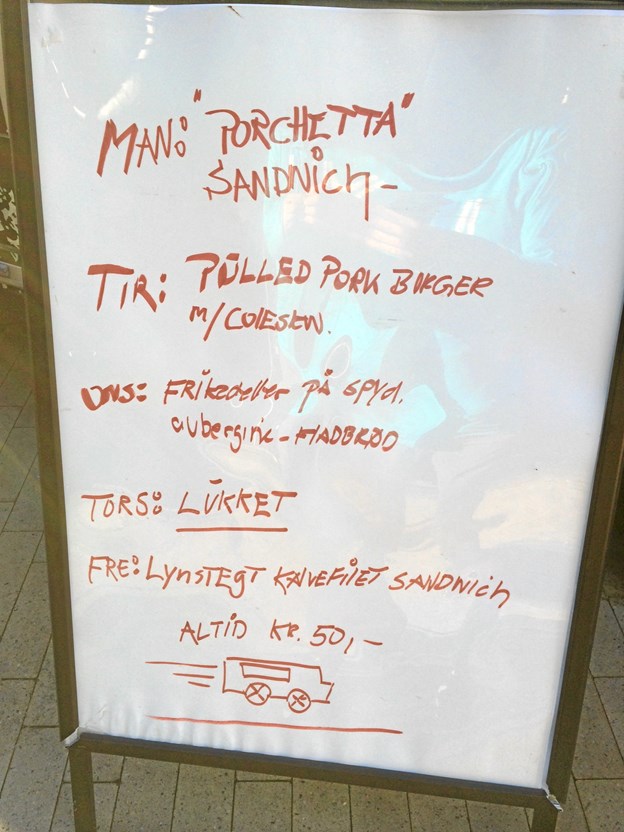 MAN: "PORCHETTA"
SANDWICH-
TIR: PULLED PORK BURGER
m/COLESLW.
ONS: FRIKADELLER på SPYD.
aubergine - FLADBRØD
TORS: LUKKET
FRE: LYNSTEGT KALVEFILET SANDWICH
ALTID KR. 50,-